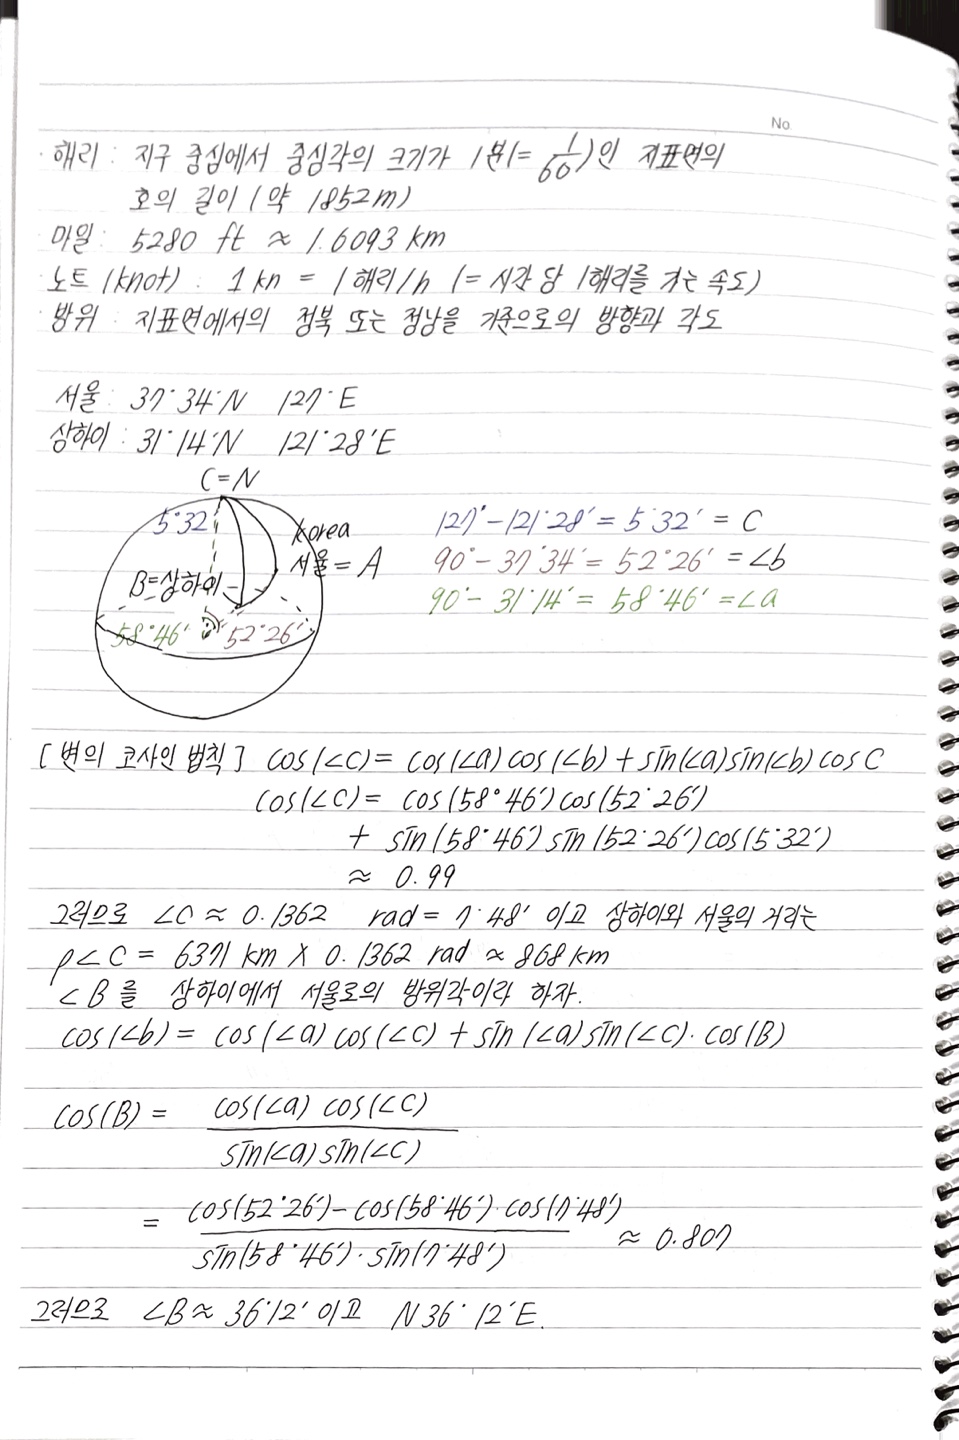 No.
· 해리 : 지구 중심에서 중심각의 크기가 1분(= 1/60)인 지표면의
호의 길이 (약 1852m)
마일 : 5280 ft ≈ 1.6093 km
노트 (knot) : 1 kn = 1 해리/h (= 시간 당 1해리를 가는 속도)
방위 : 지표면에서의 정북 또는 정남을 기준으로의 방향과 각도
서울 : 37°34'N 127°E
상하이 : 31°14'N 121°28'E
C=N
5°32'
korea
서울=A
B=상하이
58°46' 52°26'
127°-121°28' = 5°32' = C
90°-37°34' = 52°26' = ∠b
90°-31°14' = 58°46' = ∠a
[변의 코사인 법칙] cos(∠c) = cos(∠a) cos(∠b) + sin(∠a)sin(∠b) cos C
cos(∠c) = cos(58°46')cos(52°26')
+ sin(58°46') sin(52°26')cos(5°32')
≈ 0.99
그러므로 ∠C ≈ 0.1362 rad = 7°48' 이고 상하이와 서울의 거리는
ρ∠C = 6371 km X 0.1362 rad ≈ 868 km
∠B를 상하이에서 서울로의 방위각이라 하자.
cos(∠b) = cos(∠a) cos(∠c) + sin(∠a)sin(∠c)·cos(B)
cos(B) = cos(∠a) cos(∠c) / sin(∠a)sin(∠c)
= cos(52°26')-cos(58°46')·cos(7°48') / sin(58°46')·sin(7°48') ≈ 0.807
그러므로 ∠B ≈ 36°12' 이고 N 36°12'E.